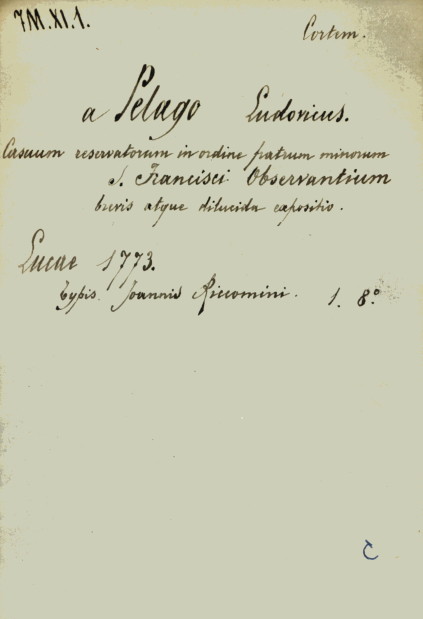 7M.XI.1.
Cortem.
a Pelago Ludovicus.
Casuum reservatorum in ordine fratrum minorum
S. Francisci Observantium
brevis atque dilucida expositio.
Lucae 1773.
typis Joannis Riccomini. 1. 8°